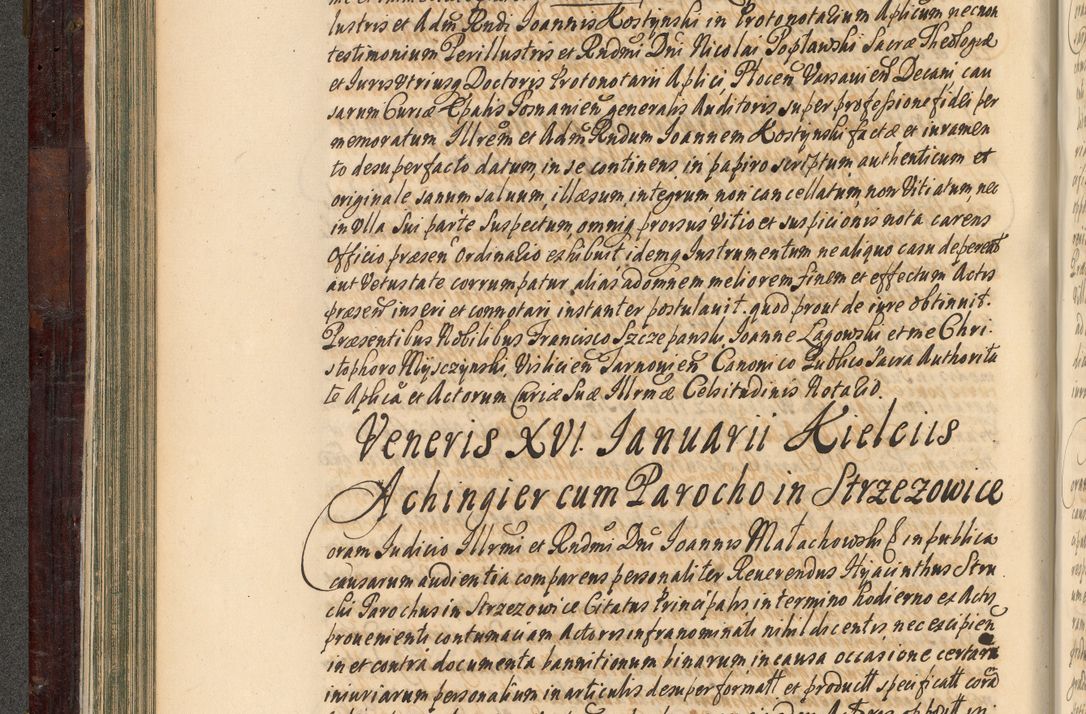 lustris et Adm Rndi Joannis Kostynski in Protonotarium Aplicum necnon
testimonium Perillustris et Rndmi Dni Nicolai Poplawski Sacræ Theologiæ
et Juris Utriusq Doctoris Protonotarii Aplici, Plocen Varsavien Decani, cau
sarum Curiæ Epalis Posnanien generalis Auditoris super professione fidei per
memoratum Illrem et Adm Rndum Joannem Kostynski factæ et iuramen
to desuper facto datum, in se continens, in papiro scriptum authenticum et
originale sanum saluum, illæsum, integrum, non cancellatum, non Vitiatum, nec
in Vlla Sui parte Suspectum, omniq prorsus Vitio et suspicionis nota carens
Officio præsen Ordinalio exhibuit idemq Instrumentum ne aliquo casu depereat
aut Vetustate corrumpatur, alias ad omnem meliorem finem et effectum Actis
præsen inseri et connotari instanter postulauit. quod prout de iure obtinuit.
Præsentibus Nobilibus Francisco Szczepanski, Joanne Lagowski et me Chri-
stophoro Mijsczynski, Vislicien Tarnovien Canonico Publico Sacra Authorita
te Aplica et Actorum Curiæ Suæ Illrmæ Celsitudinis Notalio.
Veneris XVI. Ianuarii Kielciis
Achingier cum Parocho in Strzezowice
Coram Judicio Illrmi et Rndmi Dni Joannis Malachowski & in publica
causarum audientia comparens personaliter Reuerendus Hijacinthus Stru
chi Parochus in Strzezowice Citatus Principalis in termino hodierno ex Actis
proueniente contumaciam Actoris infranominati nihil dicentis nec excipien
in et contra documenta bannitionum binarum in causa occasione certarum
iniuriarum personalium in articulis desuper formatt et productt specificatt cora